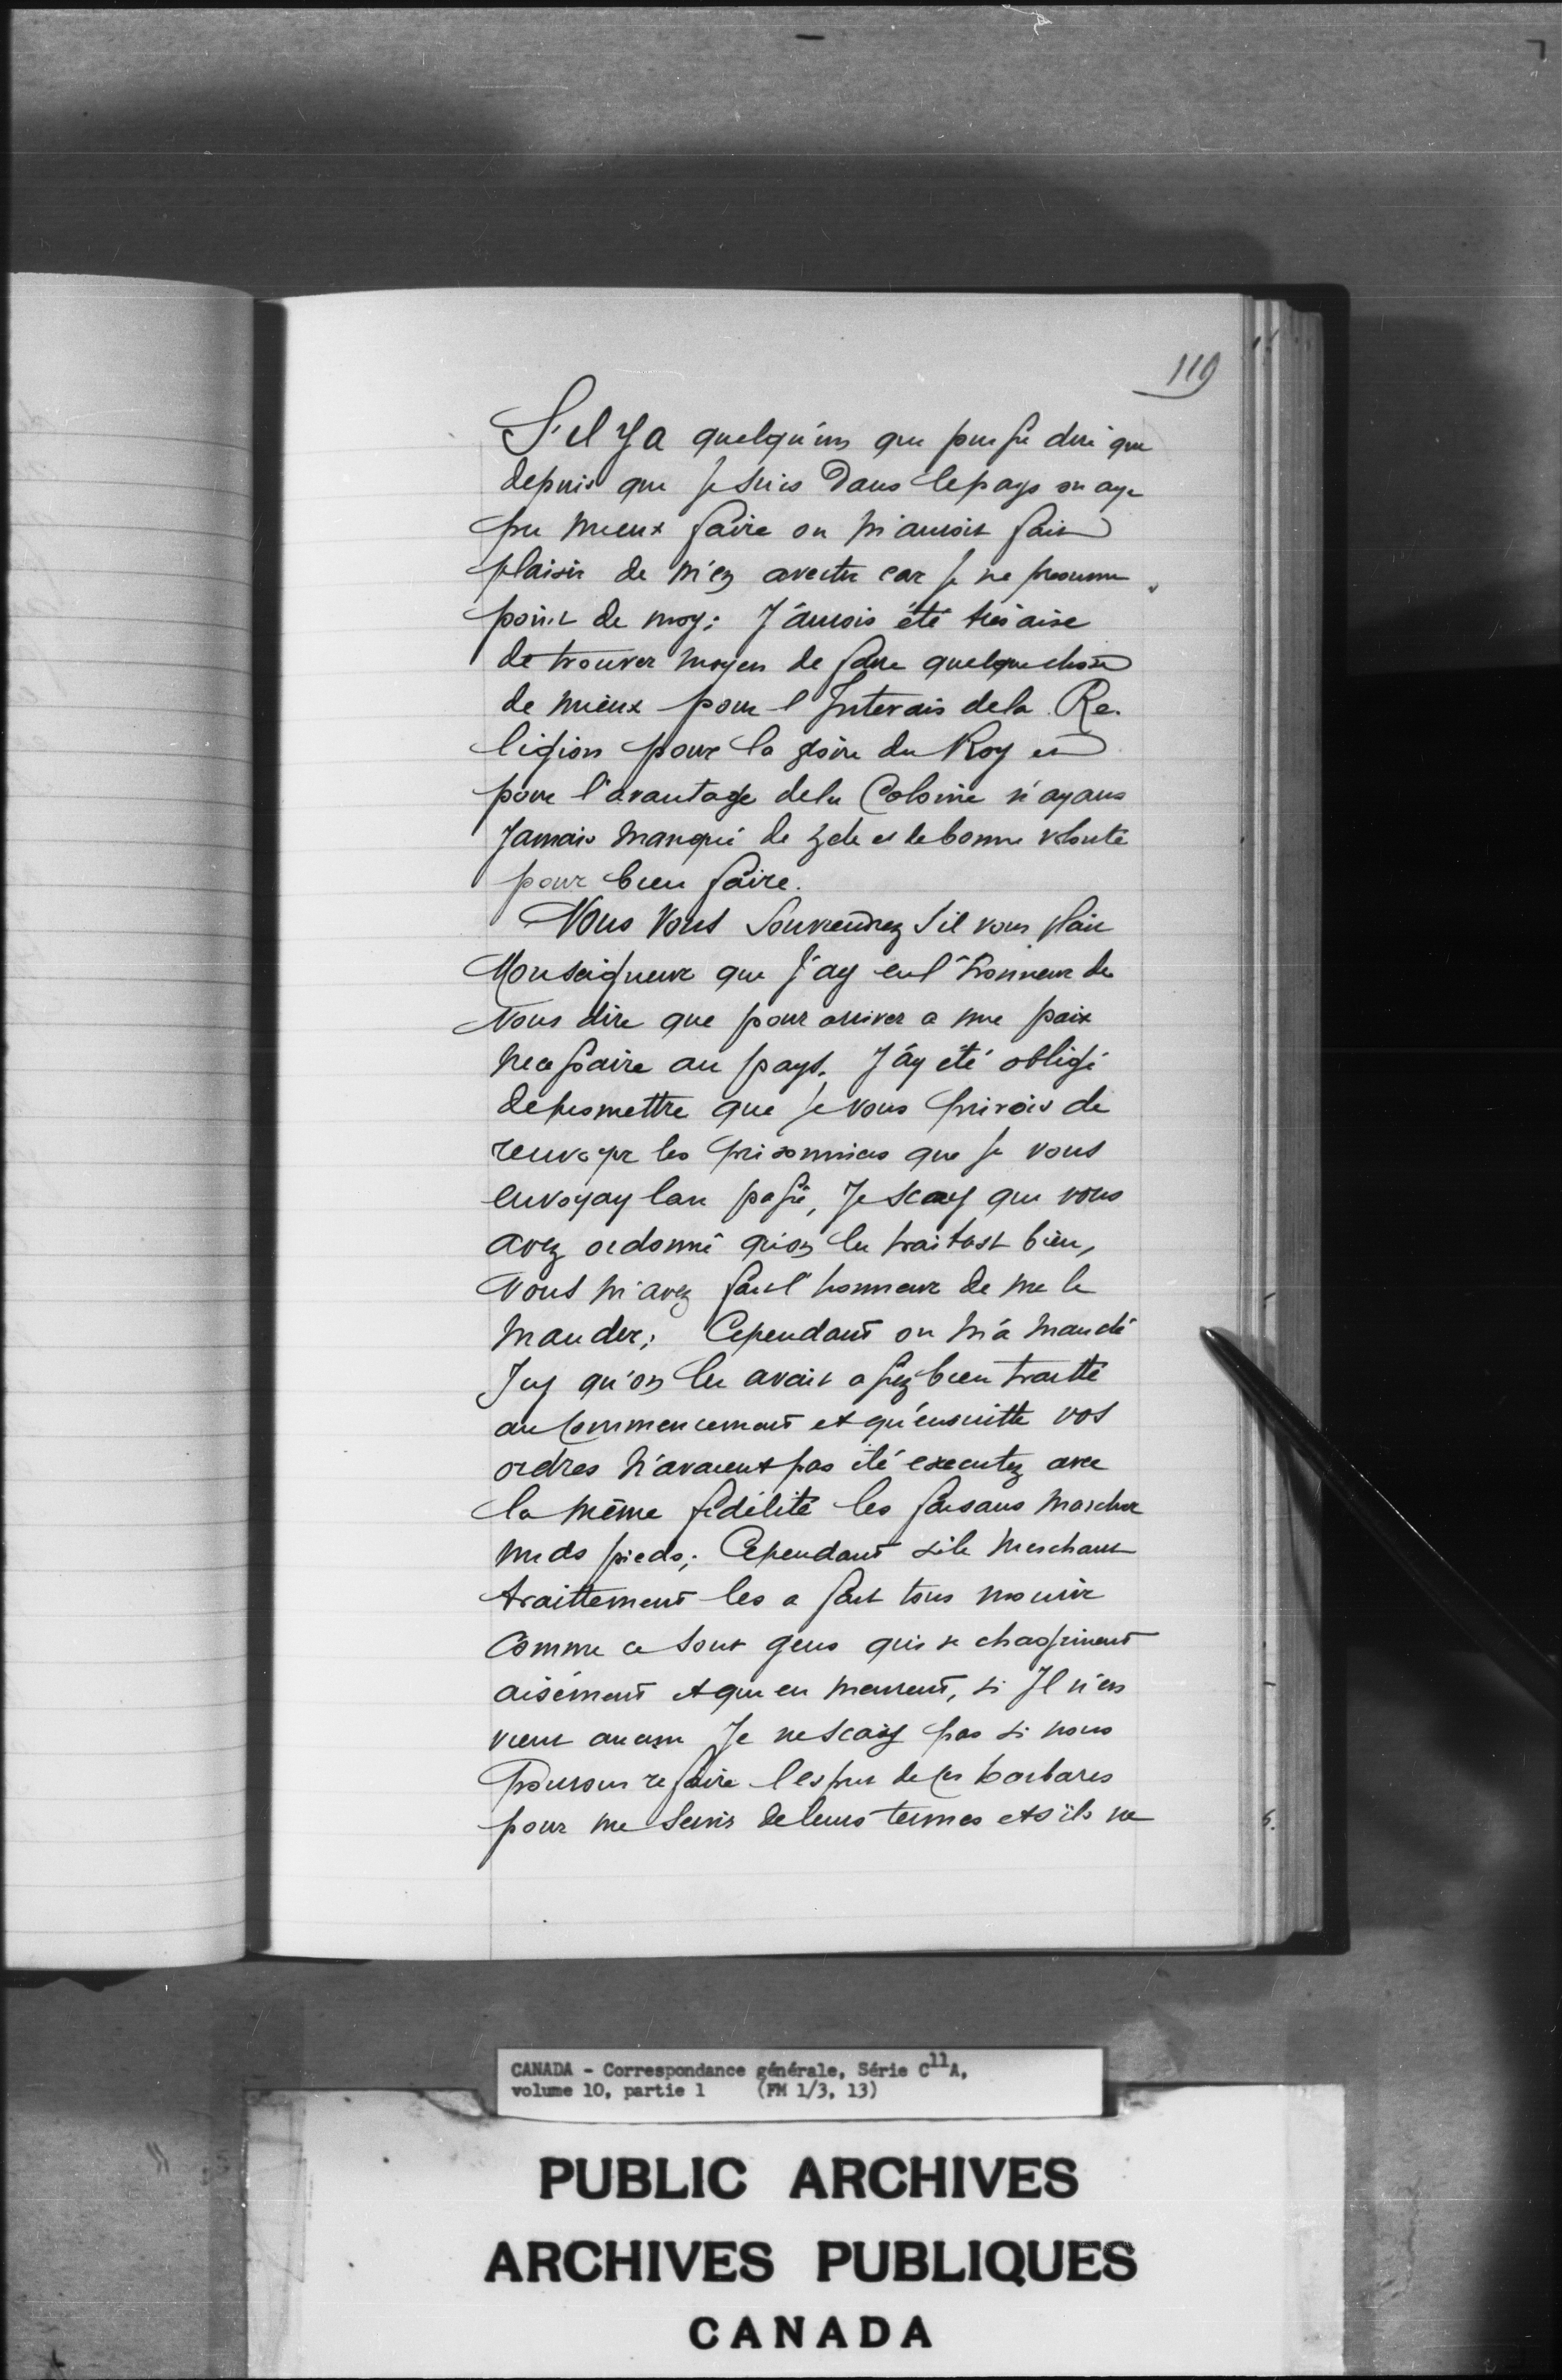 119
S'il y a quelqu'un qui puisse dire que
depuis que Je suis dans le pays on aye
pu mieux faire on m'auroit fait
plaisir de m'en avertir car Je ne presume
point de moy; J'aurois été très aise
de trouver moyen de faire quelque chose
de mieux pour l'Interais de la Re-
ligion pour la gloire du Roy et
pour l'avantage de la Colonie n'ayans
Jamais manqué de zele et de bonne volonté
pour bien faire.
Vous Vous Souviendrez s'il vous plait
Monseigneur que J'ay eu l'honneur de
Vous dire que pour arriver a une paix
necessaire au pays, J'ay été obligé
de promettre que Je vous prirois de
renvoyer les prisonniers que Je vous
envoyay l'an passé, Je scay que vous
avez ordonné qu'on les traitast bien,
Vous m'avez fait l'honneur de me le
mander; Cependant on m'a mandé
Icy qu'on les avait assez bien traitté
au Commencement et qu'ensuitte vos
ordres n'avaient pas été executez avec
la même fidélité les faisans marcher
nuds pieds; Cependant si le meschant
traittement les a fait tous mourir
Comme ce sont gens qui se chagrinent
aisément et qui en meurent, si Il n'en
vient aucun Je ne scay pas si nous
Pourons refaire l'esprit de ces barbares
pour me servir de leurs termes et s'ils ne
CANADA - Correspondance générale, Série C11A,
volume 10, partie 1 (FM 1/3, 13)
PUBLIC ARCHIVES
ARCHIVES PUBLIQUES
CANADA